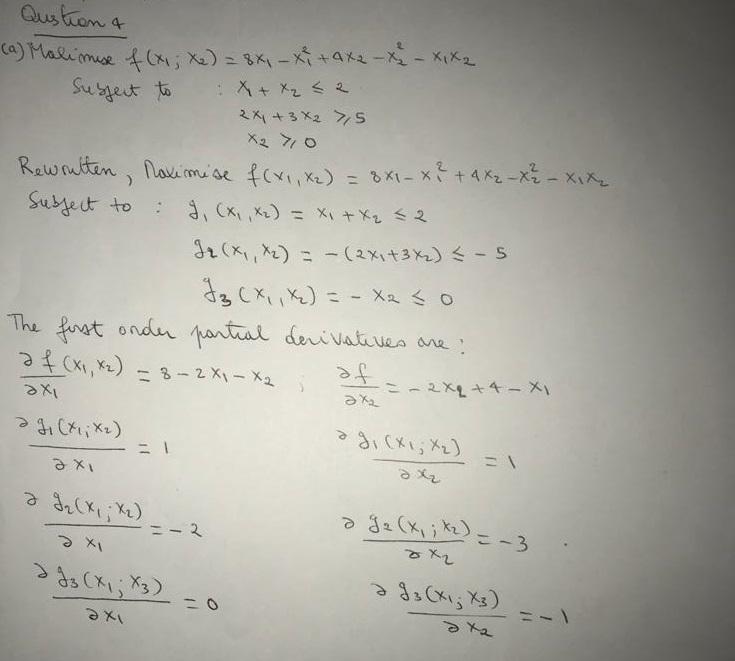 Qustion 4
(a) Maximise f(x₁; x₂) = 8x₁ – x₁² + 4x₂ – x₂² – x₁x₂
Subject to : x₁ + x₂ ≤ 2
2x₁ + 3x₂ ≥ 5
x₂ ≥ 0
Rewritten, Maximise f(x₁, x₂) = 8x₁ – x₁² + 4x₂ – x₂² – x₁x₂
Subject to : g₁(x₁, x₂) = x₁ + x₂ ≤ 2
g₂(x₁, x₂) = – (2x₁+3x₂) ≤ – 5
g₃(x₁, x₂) = – x₂ ≤ 0
The first order partial derivatives are :
∂f(x₁, x₂)/∂x₁ = 8 – 2x₁ – x₂ ; ∂f/∂x₂ = – 2x₂ + 4 – x₁
∂g₁(x₁; x₂)/∂x₁ = 1 ∂g₁(x₁; x₂)/∂x₂ = 1
∂g₂(x₁; x₂)/∂x₁ = – 2 ∂g₂(x₁; x₂)/∂x₂ = – 3 .
∂g₃(x₁; x₃)/∂x₁ = 0 ∂g₃(x₁; x₃)/∂x₂ = – 1